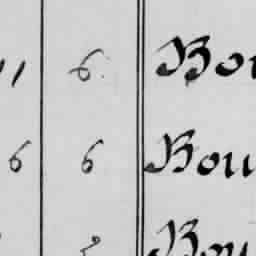 11 6 Bou
6 6 Bou
Bou